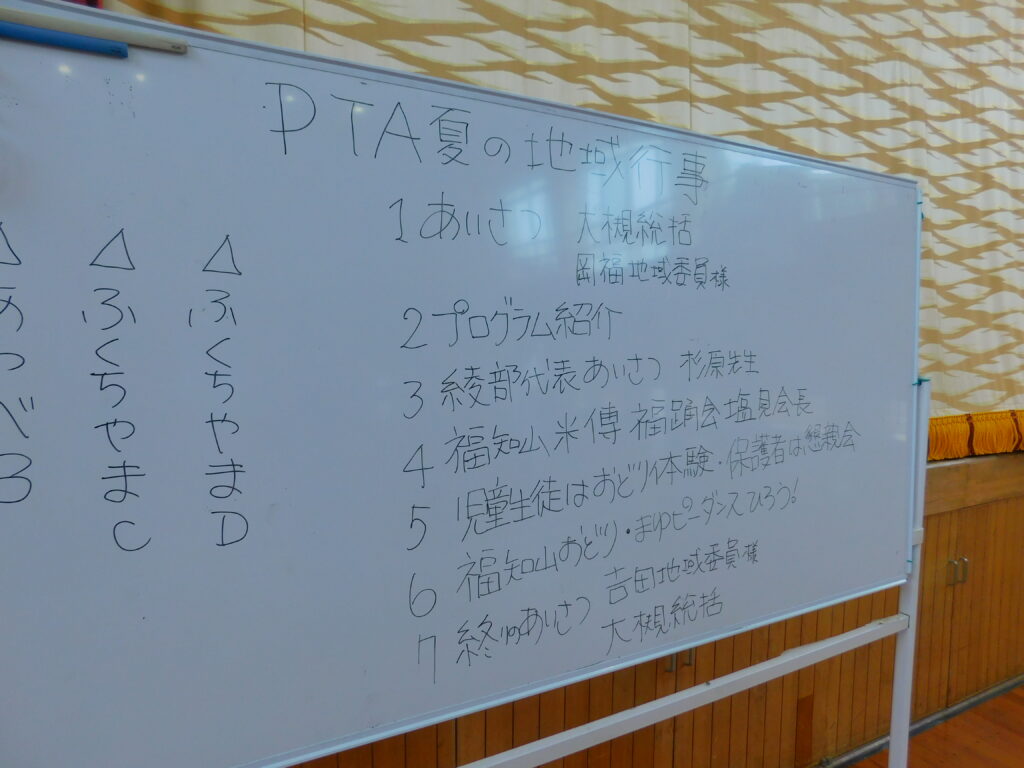 PTA夏の地域行事
1 あいさつ 大槻総括
岡福地域委員様
2 プログラム紹介
3 綾部代表あいさつ 杉原先生
4 福知山米傳 福踊会塩見会長
5 児童生徒はおどり体験・保護者は懇親会
6 福知山おどり・まゆピーダンスひろう!
7 終りのあいさつ 吉田地域委員様
大槻総括
△ふくちやまD
△ふくちやまC
△あつべろ